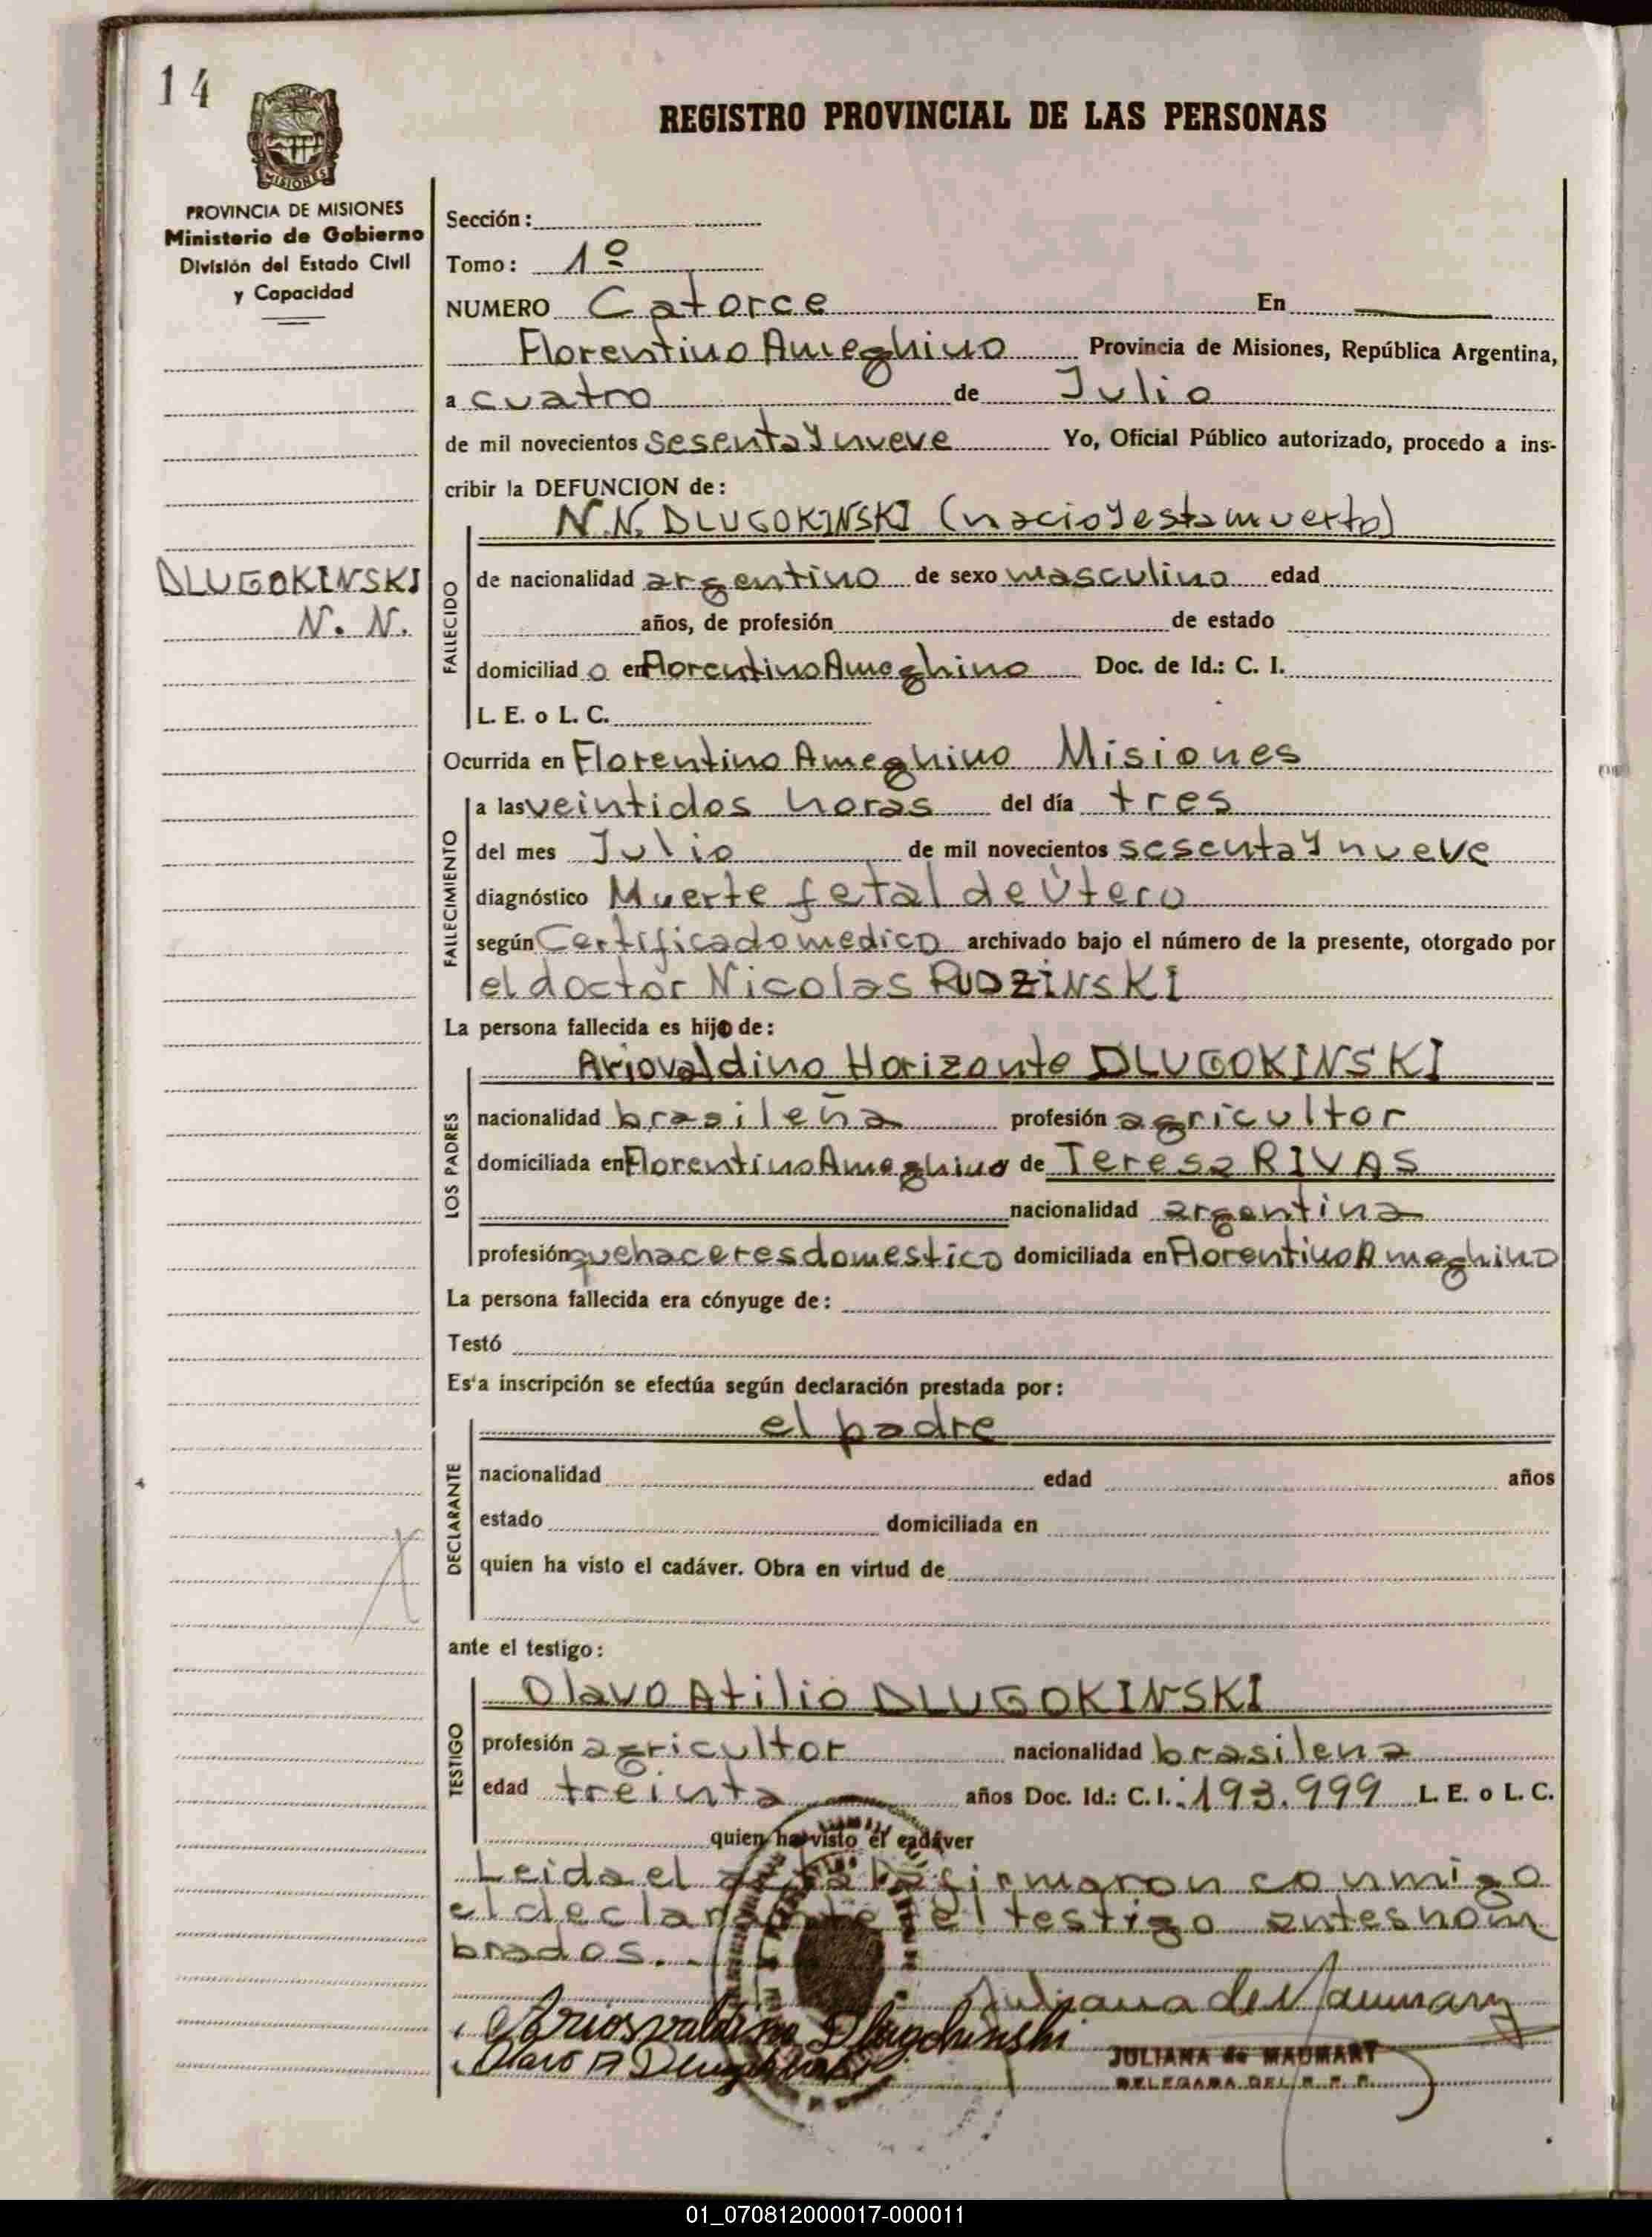 14
REGISTRO PROVINCIAL DE LAS PERSONAS
MISIONES
PROVINCIA DE MISIONES
Ministerio de Gobierno
División del Estado Civil
y Capacidad
Sección:
Tomo: 1º
NUMERO Catorce En
Florentino Ameghino Provincia de Misiones, República Argentina,
a cuatro de Julio
de mil novecientos sesenta y nueve Yo, Oficial Público autorizado, procedo a ins-
cribir la DEFUNCION de:
N.N. DLUGOKINSKI (nacio y esta muerto)
DLUGOKINSKI
N. N.
FALLECIDO
de nacionalidad argentino de sexo masculino edad
años, de profesión de estado
domiciliado en Florentino Ameghino Doc. de Id.: C. I.
L. E. o L. C.
Ocurrida en Florentino Ameghino Misiones
FALLECIMIENTO
a las veintidos horas del día tres
del mes Julio de mil novecientos sesenta y nueve
diagnóstico Muerte fetal de útero
según Certificado medico archivado bajo el número de la presente, otorgado por
el doctor Nicolas RUDZINSKI
La persona fallecida es hijo de:
LOS PADRES
Ariovaldino Horizonte DLUGOKINSKI
nacionalidad brasileña profesión agricultor
domiciliada en Florentino Ameghino de Teresa RIVAS
nacionalidad argentina
profesión quehaceres domestico domiciliada en Florentino Ameghino
La persona fallecida era cónyuge de:
Testó
Es'a inscripción se efectúa según declaración prestada por:
DECLARANTE
el padre
nacionalidad edad años
estado domiciliada en
quien ha visto el cadáver. Obra en virtud de
ante el testigo:
TESTIGO
Olavo Atilio DLUGOKINSKI
profesión agricultor nacionalidad brasilena
edad treinta años Doc. Id.: C. I.: 193.999 L. E. o L. C.
quien ha visto el cadáver
Leida el acta la firmaron conmigo
el declarante y el testigo antes nom
brados.
Juliana de Maumary
Ariosvaldino Dlugokinski
Olavo A Dlugokinski
JULIANA de MAUMARY
DELEGADA DEL R. P. P.
01_070812000017-000011